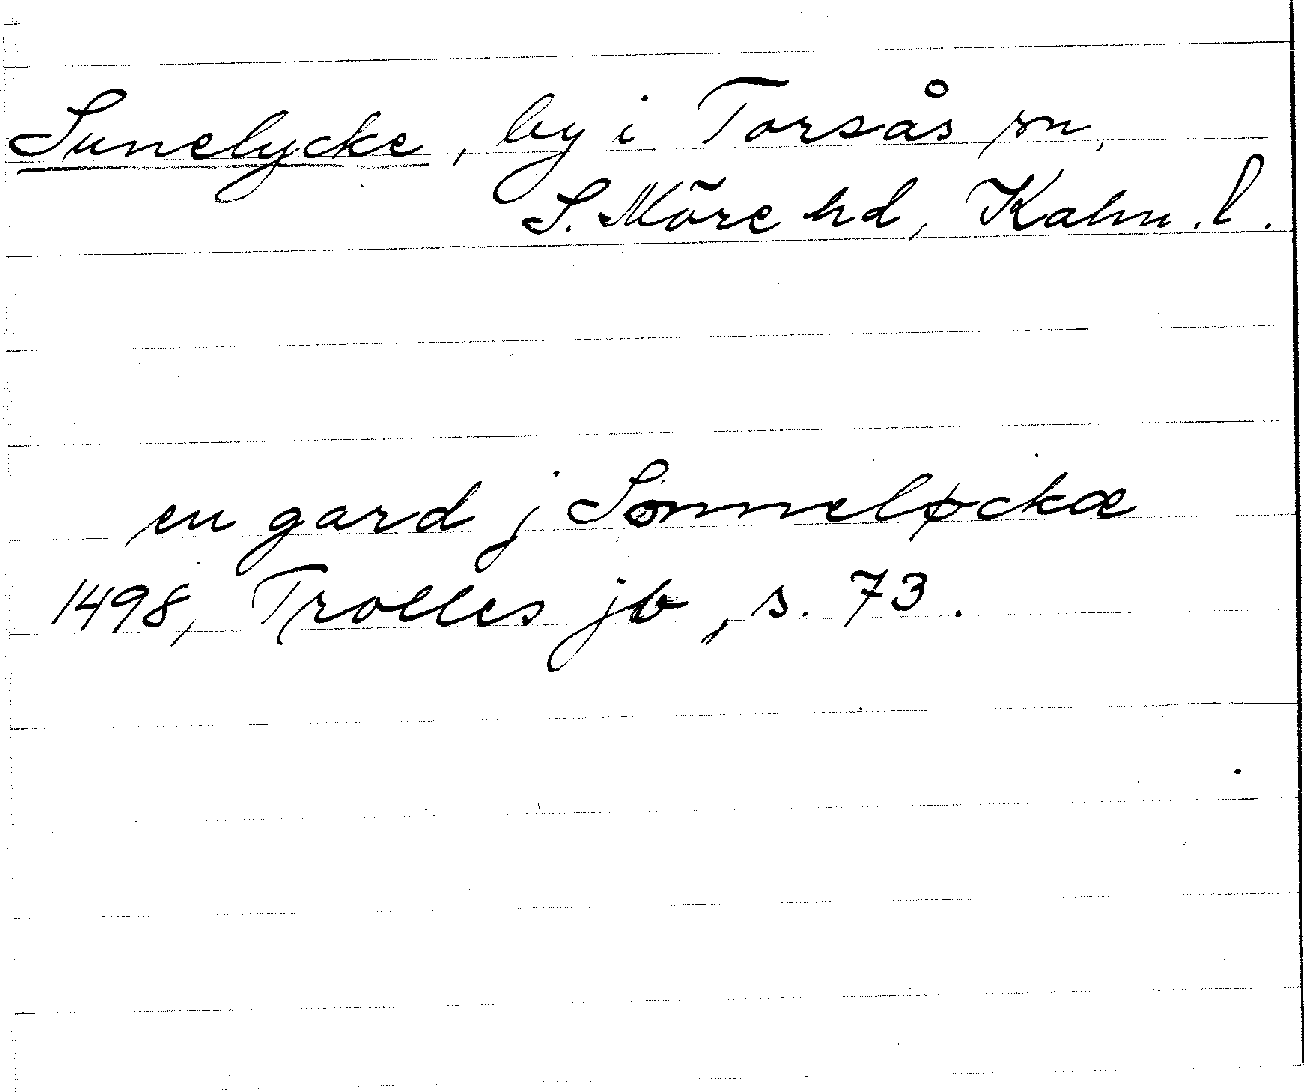 Sunelycke, by i Torsås sn,
S. Möre hd, Kalm. l.
en gard j Sonneløckæ
1498, Trolles jb, s. 73.